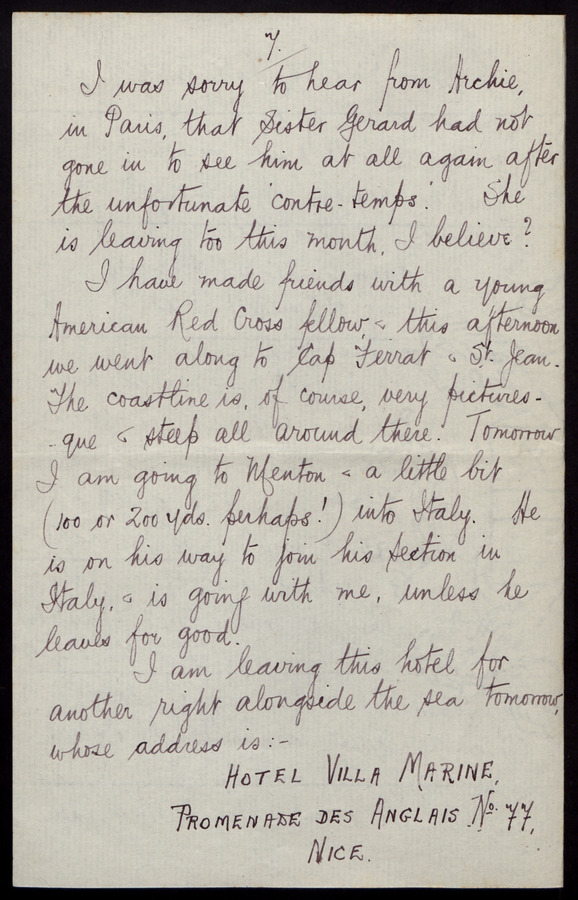 7.
I was sorry to hear from Archie,
in Paris, that Sister Gerard had not
gone in to see him at all again after
the unfortunate 'contre-temps'. She
is leaving too this month, I believe?
I have made friends with a young
American Red Cross fellow, & this afternoon
we went along to Cap Ferrat & St. Jean.
The coastline is, of course, very pictures-
-que & steep all around there. Tomorrow
I am going to Menton & a little bit
(100 or 200 yds. perhaps!) into Italy. He
is on his way to join his section in
Italy, & is going with me, unless he
leaves for good.
I am leaving this hotel for
another right alongside the sea tomorrow,
whose address is:-
HOTEL VILLA MARINE,
PROMENADE DES ANGLAIS No. 77,
NICE.